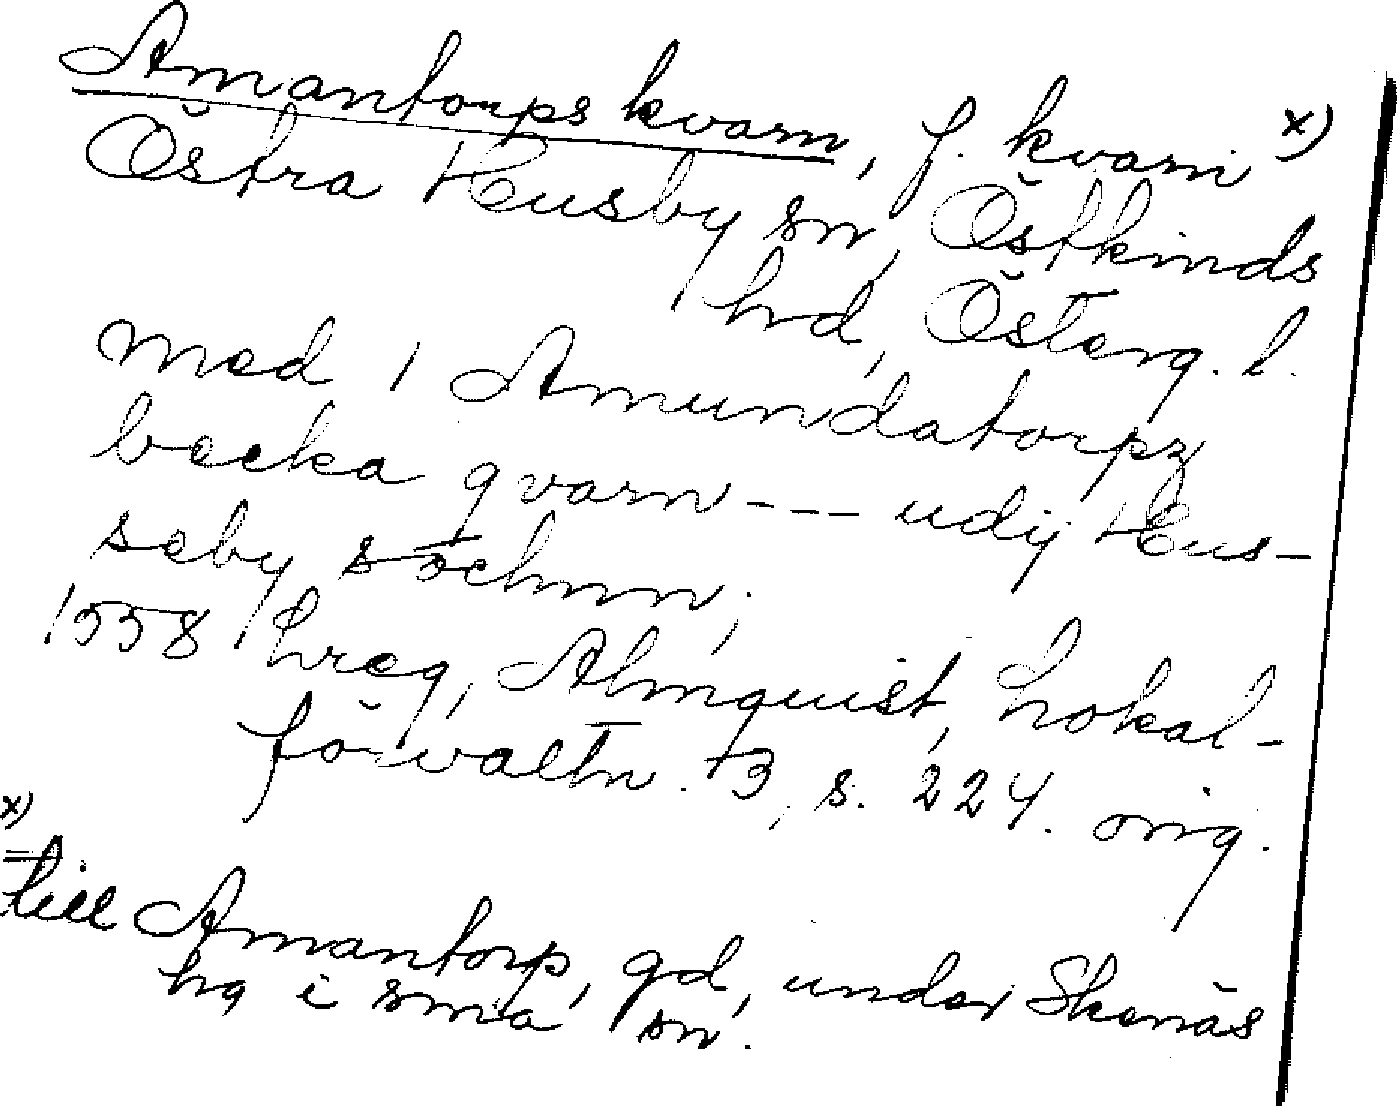 Amantorps kvarn, f. kvarn x)
Östra Husby sn, Östkinds
hd, Österg. l.
med 1 Amundatorpz
becka qvarn --- udij Hus-
seby sochnn;
1558 hreg, Almquist, Lokal-
förvaltn. 3, s. 224. orig.
x)
till Amantorp, gd, under Skenäs
hg i sma sn.